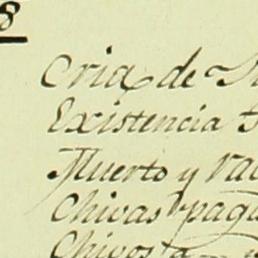 8
Cria de
Existencia
Muerto y
Chivas pag
Chivos